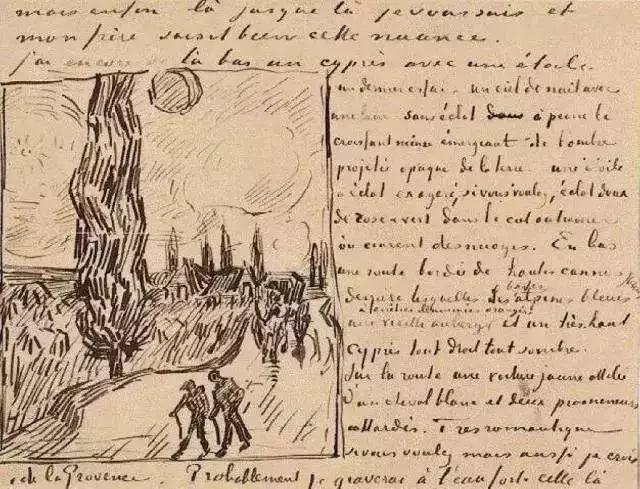 mais enfin là jusque là je vous sais et
mon frère saisit bien cette nuance.
j'ai encore de là bas un cyprès avec une étoile
un dernier essai – un ciel de nuit avec
une lune sans éclat à peine le
croissant mince émergeant de l'ombre
projetée opaque de la terre – une étoile
à éclat exagéré, si vous voulez, éclat doux
de rose & vert dans le ciel outremer
où courent des nuages. En bas
une route bordée de hautes cannes
derrière lesquelles les basses alpines bleues
à fenêtres illuminées orangées
une vieille auberge et un très haut
cyprès tout droit tout sombre.
Sur la route une voiture jaune attelée
d'un cheval blanc et deux promeneurs
attardés. Très romantique
si vous voulez mais aussi je crois
de la Provence. Probablement je graverai à l'eau forte celle là